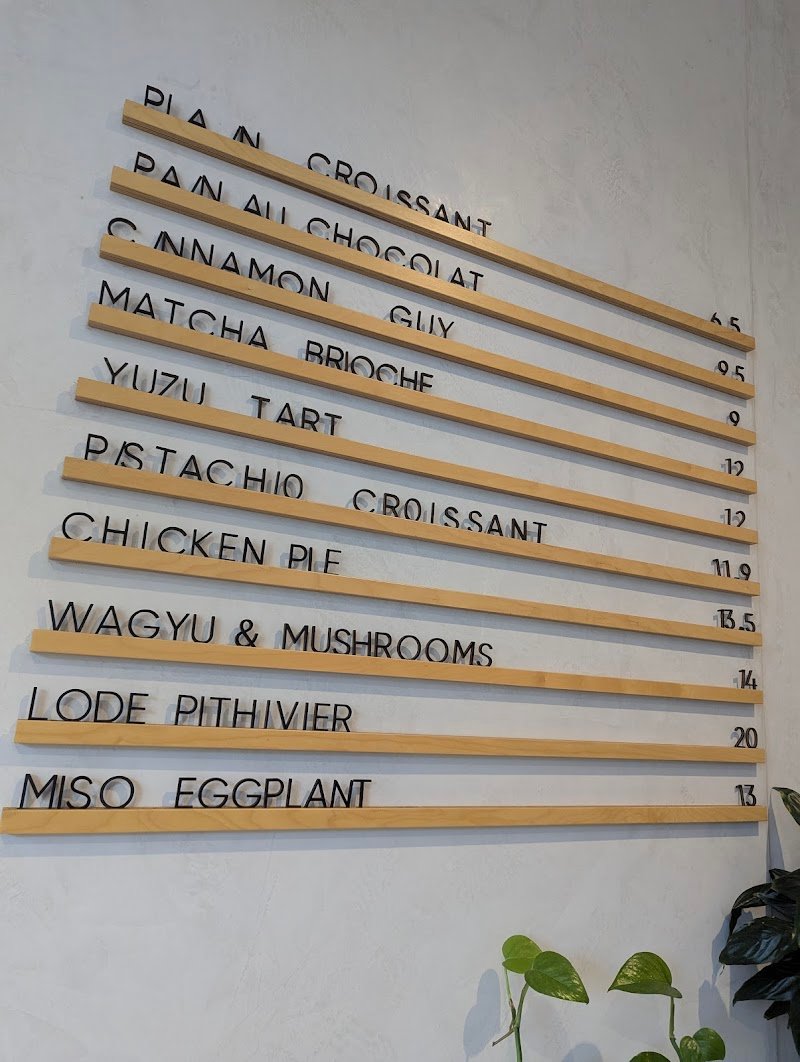 PLAIN CROISSANT 6.5
PAIN AU CHOCOLAT 9.5
CINNAMON GUY 9
MATCHA BRIOCHE 12
YUZU TART 12
PISTACHIO CROISSANT 11.9
CHICKEN PIE 13.5
WAGYU & MUSHROOMS 14
LODE PITHIVIER 20
MISO EGGPLANT 13